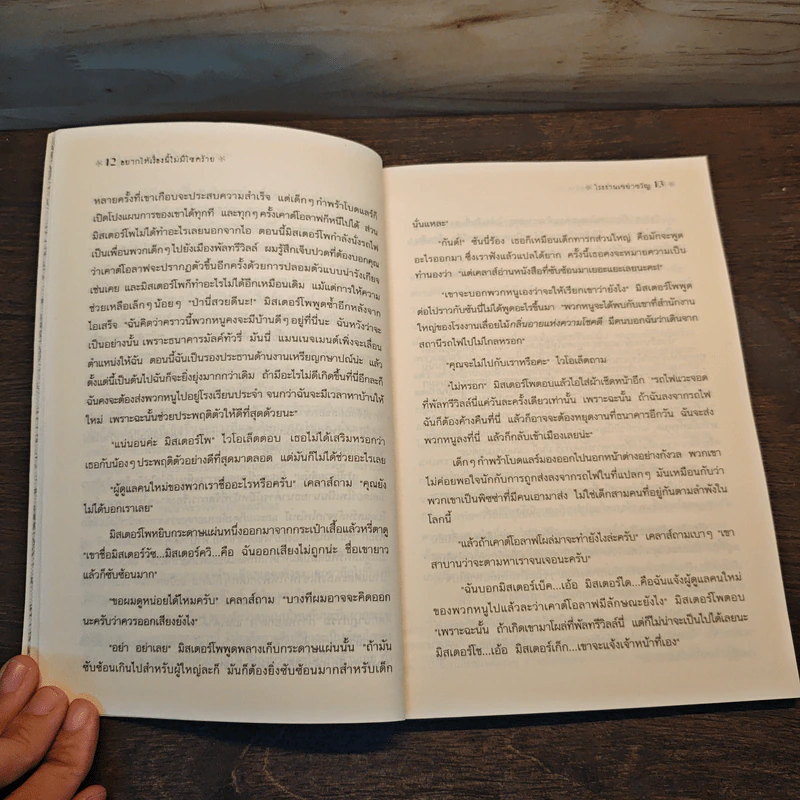 12 อยากให้เรื่องนี้ไม่มีโชคร้าย
หลายครั้งที่เขาเกือบจะประสบความสำเร็จ แต่เด็กๆ กำพร้าโบดแลร์ก็
เปิดโปงแผนการของเขาได้ทุกที และทุกๆ ครั้งเคาต์โอลาฟก็หนีไปได้ ส่วน
มิสเตอร์โพไม่ได้ทำอะไรเลยนอกจากไอ ตอนนี้มิสเตอร์โพกำลังนั่งรถไฟ
เป็นเพื่อนพวกเด็กๆ ไปยังเมืองพัลทรีวิลล์ ผมรู้สึกเจ็บปวดที่ต้องบอกคุณ
ว่าเคาต์โอลาฟจะปรากฏตัวขึ้นอีกครั้งด้วยการปลอมตัวแบบน่ารังเกียจ
เช่นเคย และมิสเตอร์โพก็ทำอะไรไม่ได้อีกเหมือนเดิม แม้แต่การให้ความ
ช่วยเหลือเล็กๆ น้อยๆ "ป่านี่สวยดีนะ!" มิสเตอร์โพพูดซ้ำอีกหลังจาก
ไอเสร็จ "ฉันคิดว่าคราวนี้พวกหนูคงจะมีบ้านดีๆ อยู่ที่นี่นะ ฉันหวังว่าจะ
เป็นอย่างนั้น เพราะธนาคารมัลค์ทัวรี่ มันนี่ แมนเนจเมนต์เพิ่งจะเลื่อน
ตำแหน่งให้ฉัน ตอนนี้ฉันเป็นรองประธานด้านงานเหรียญกษาปณ์นะ แล้ว
ตั้งแต่นี้เป็นต้นไปฉันก็จะยิ่งยุ่งมากกว่าเดิม ถ้ามีอะไรไม่ดีเกิดขึ้นที่นี่อีกละก็
ฉันคงจะต้องส่งพวกหนูไปอยู่โรงเรียนประจำ จนกว่าฉันจะมีเวลาหาบ้านให้
ใหม่ เพราะฉะนั้นช่วยประพฤติตัวให้ดีที่สุดด้วยนะ"
"แน่นอนค่ะ มิสเตอร์โพ" ไวโอเล็ตตอบ เธอไม่ได้เสริมหรอกว่า
เธอกับน้องๆ ประพฤติตัวอย่างดีที่สุดมาตลอด แต่มันก็ไม่ได้ช่วยอะไรเลย
"ผู้ดูแลคนใหม่ของพวกเราชื่ออะไรหรือครับ" เคลาส์ถาม "คุณยัง
ไม่ได้บอกเราเลย"
มิสเตอร์โพหยิบกระดาษแผ่นหนึ่งออกมาจากกระเป๋าเสื้อแล้วหรี่ตาดู
"เขาชื่อมิสเตอร์วัซ...มิสเตอร์ควี...คือ ฉันออกเสียงไม่ถูกน่ะ ชื่อเขายาว
แล้วก็ซับซ้อนมาก"
"ขอผมดูหน่อยได้ไหมครับ" เคลาส์ถาม "บางทีผมอาจจะคิดออก
นะครับว่าควรออกเสียงยังไง"
"อย่า อย่าเลย" มิสเตอร์โพพูดพลางเก็บกระดาษแผ่นนั้น "ถ้ามัน
ซับซ้อนเกินไปสำหรับผู้ใหญ่ละก็ มันก็ต้องยิ่งซับซ้อนมากสำหรับเด็ก
โรงงานเขย่าขวัญ 13
นั่นแหละ"
"กันต์!" ซันนี่ร้อง เธอก็เหมือนเด็กทารกส่วนใหญ่ คือมักจะพูด
อะไรออกมา ซึ่งเราฟังแล้วแปลได้ยาก ครั้งนี้เธอคงจะหมายความเป็น
ทำนองว่า "แต่เคลาส์อ่านหนังสือที่ซับซ้อนมาเยอะแยะเลยนะคะ!"
"เขาจะบอกพวกหนูเองว่าจะให้เรียกเขาว่ายังไง" มิสเตอร์โพพูด
ต่อไปราวกับซันนี่ไม่ได้พูดอะไรขึ้นมา "พวกหนูจะได้พบกับเขาที่สำนักงาน
ใหญ่ของโรงงานเลื่อยไม้กลิ่นอายแห่งความโชคดี มีคนบอกฉันว่าเดินจาก
สถานีรถไฟไปไม่ไกลหรอก"
"คุณจะไม่ไปกับเราหรือคะ" ไวโอเล็ตถาม
"ไม่หรอก" มิสเตอร์โพตอบแล้วไอใส่ผ้าเช็ดหน้าอีก "รถไฟแวะจอด
ที่พัลทรีวิลล์นี่แค่วันละครั้งเดียวเท่านั้น เพราะฉะนั้น ถ้าฉันลงจากรถไฟ
ฉันก็ต้องค้างคืนที่นี่ แล้วก็อาจจะต้องหยุดงานที่ธนาคารอีกวัน ฉันจะส่ง
พวกหนูลงที่นี่ แล้วก็กลับเข้าเมืองเลยน่ะ"
เด็กๆ กำพร้าโบดแลร์มองออกไปนอกหน้าต่างอย่างกังวล พวกเขา
ไม่ค่อยพอใจนักกับการถูกส่งลงจากรถไฟในที่แปลกๆ มันเหมือนกับว่า
พวกเขาเป็นพิซซ่าที่มีคนเอามาส่ง ไม่ใช่เด็กสามคนที่อยู่กันตามลำพังใน
โลกนี้
"แล้วถ้าเคาต์โอลาฟโผล่มาจะทำยังไงล่ะครับ" เคลาส์ถามเบาๆ "เขา
สาบานว่าจะตามหาเราจนเจอนะครับ"
"ฉันบอกมิสเตอร์เบ็ค...เอ้อ มิสเตอร์ได...คือฉันแจ้งผู้ดูแลคนใหม่
ของพวกหนูไปแล้วละว่าเคาต์โอลาฟมีลักษณะยังไง" มิสเตอร์โพตอบ
"เพราะฉะนั้น ถ้าเกิดเขามาโผล่ที่พัลทรีวิลล์นี่ แต่ก็ไม่น่าจะเป็นไปได้เลยนะ
มิสเตอร์โช...เอ้อ มิสเตอร์เก็ก...เขาจะแจ้งเจ้าหน้าที่เอง"